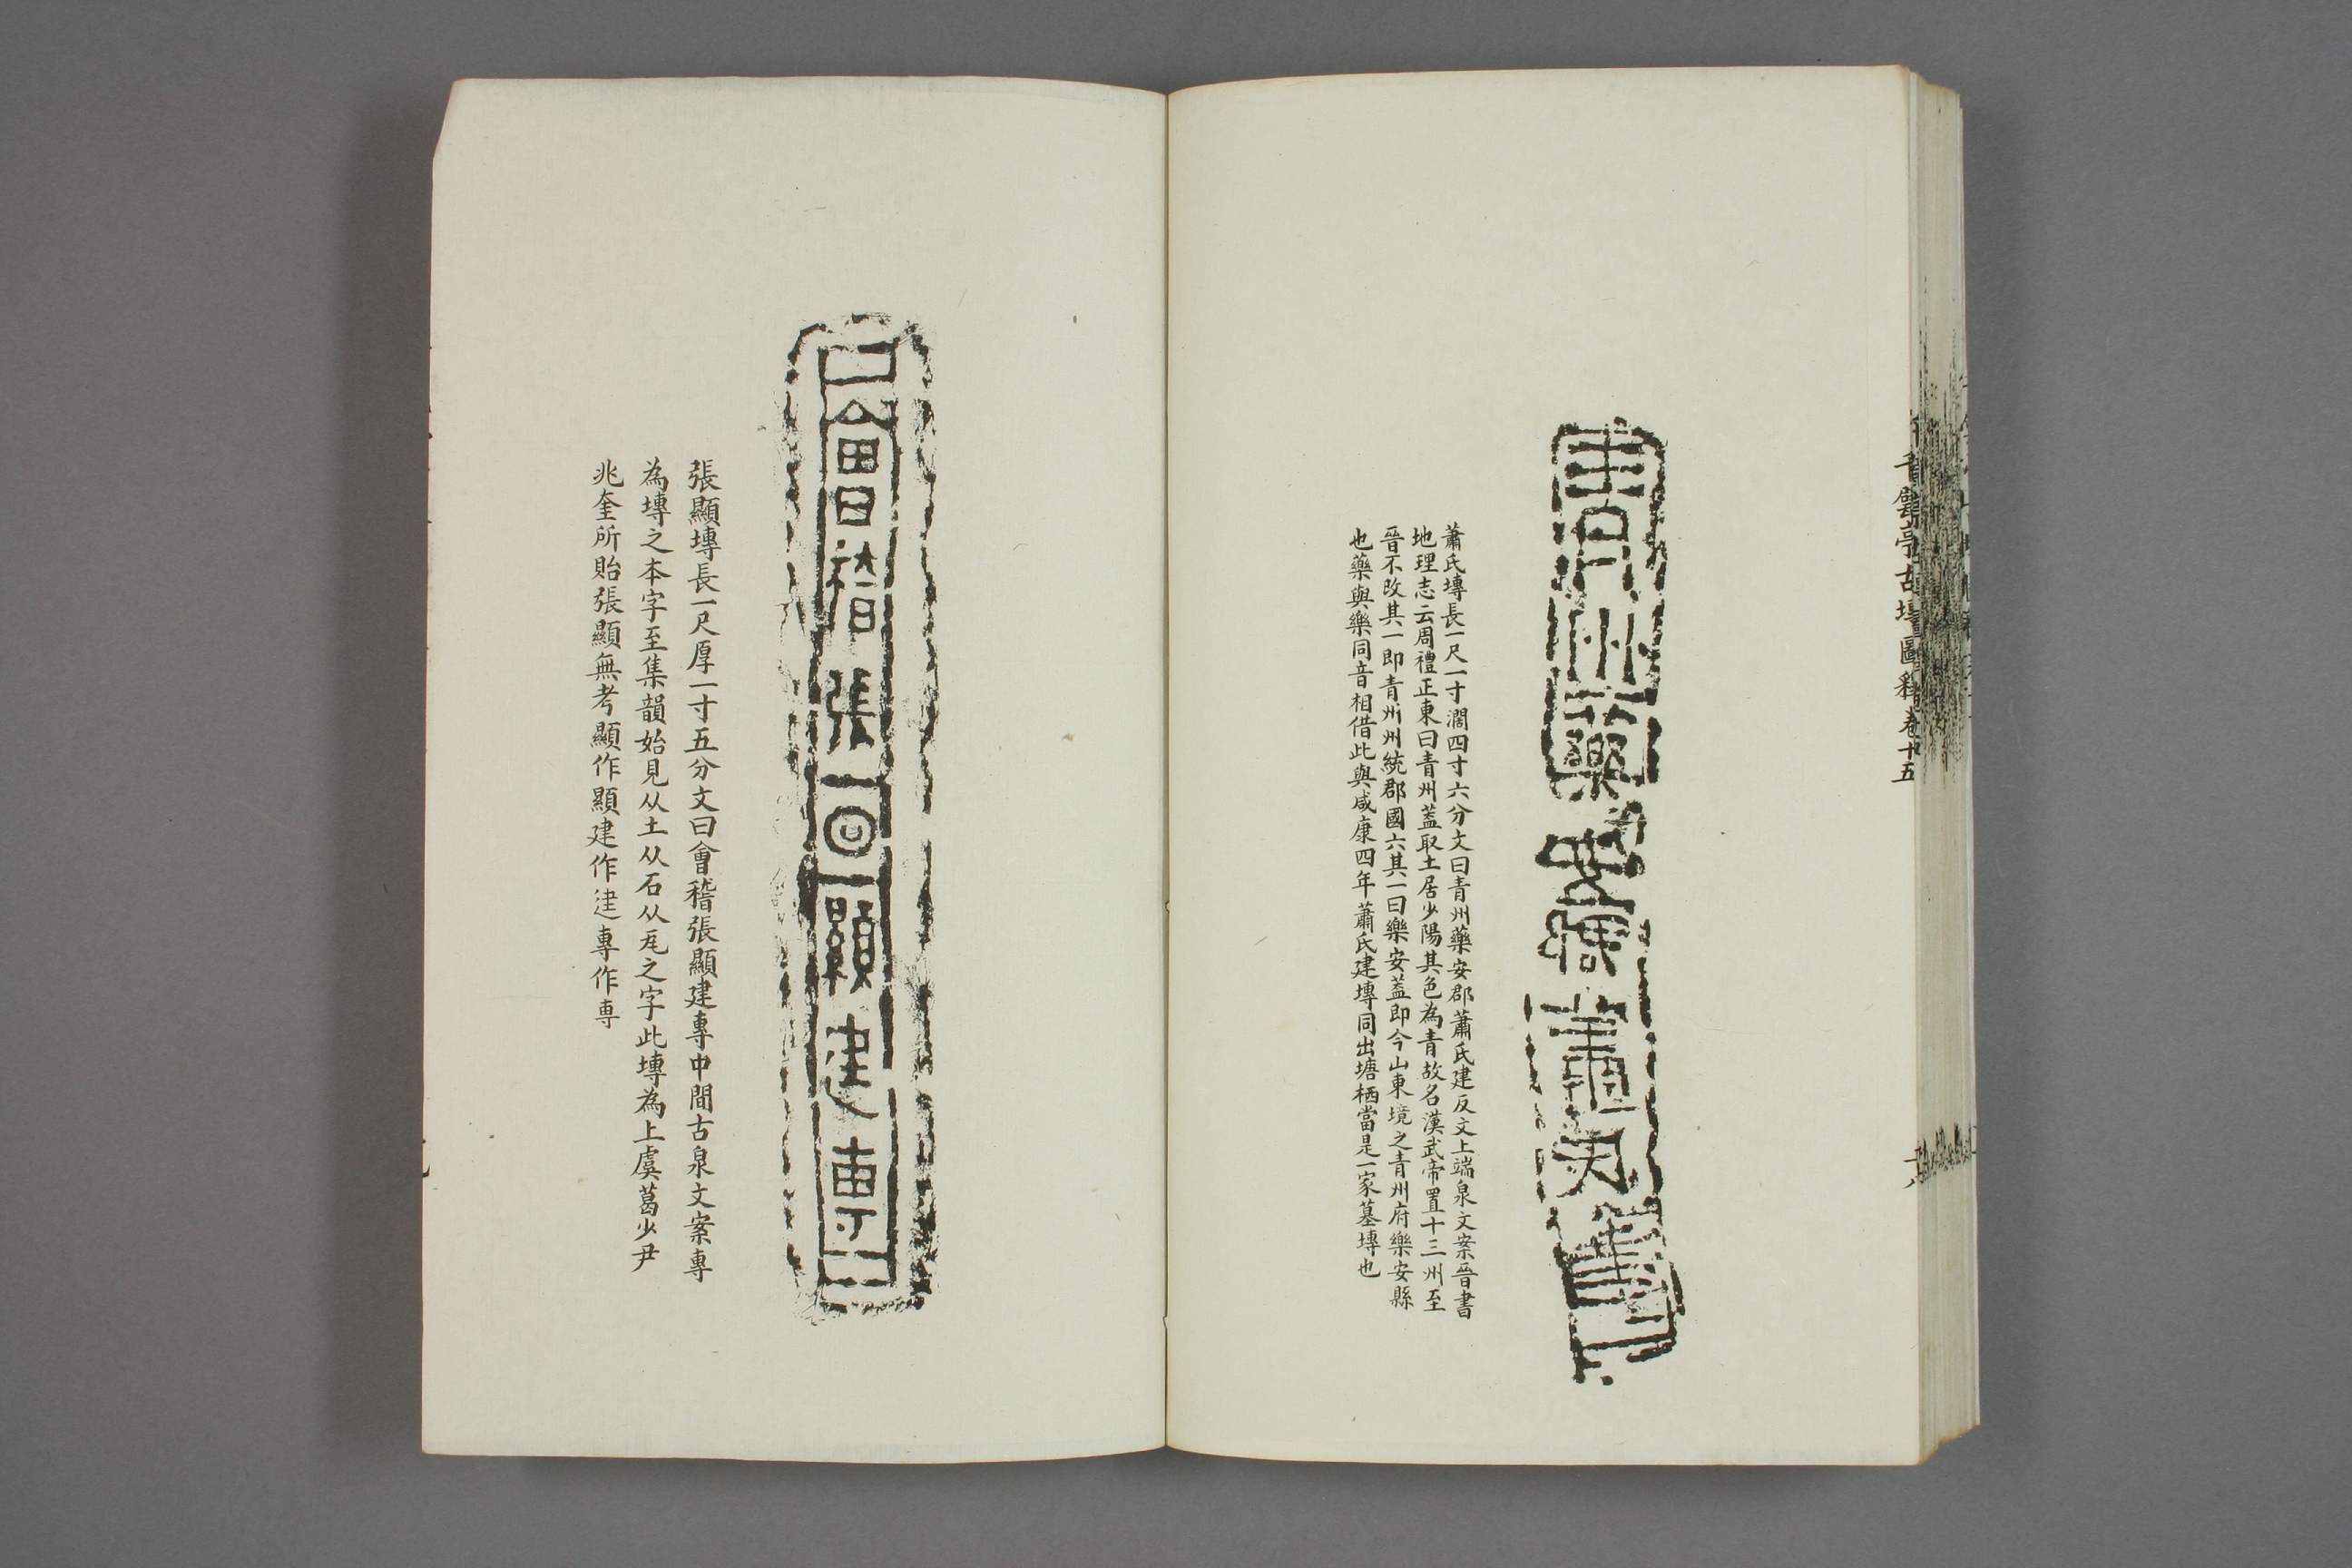 千甓亭古塼圖釋卷十五
青州藥安郡蕭氏建
蕭氏塼長一尺一寸濶四寸六分文曰青州藥安郡蕭氏建反文上端泉文案晉書
地理志云周禮正東曰青州蓋取土居少陽其色為青故名漢武帝置十三州至
晉不改其一即青州州統郡國六其一曰樂安蓋即今山東境之青州府樂安縣
也藥與樂同音相借此與咸康四年蕭氏建塼同出塘栖當是一家墓塼也
會稽張顯建專
張顯塼長一尺厚一寸五分文曰會稽張顯建專中間古泉文案專
為塼之本字至集韻始見从土从石从瓦之字此塼為上虞葛少尹
兆奎所貽張顯無考顯作顕建作𨒌專作専